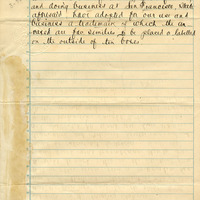 and doing business at San Francisco, State
aforesaid, have adopted for our use and
business a trademark of which the an-
nexed are fac similies to be placed & labelled
on the outside of tea boxes.